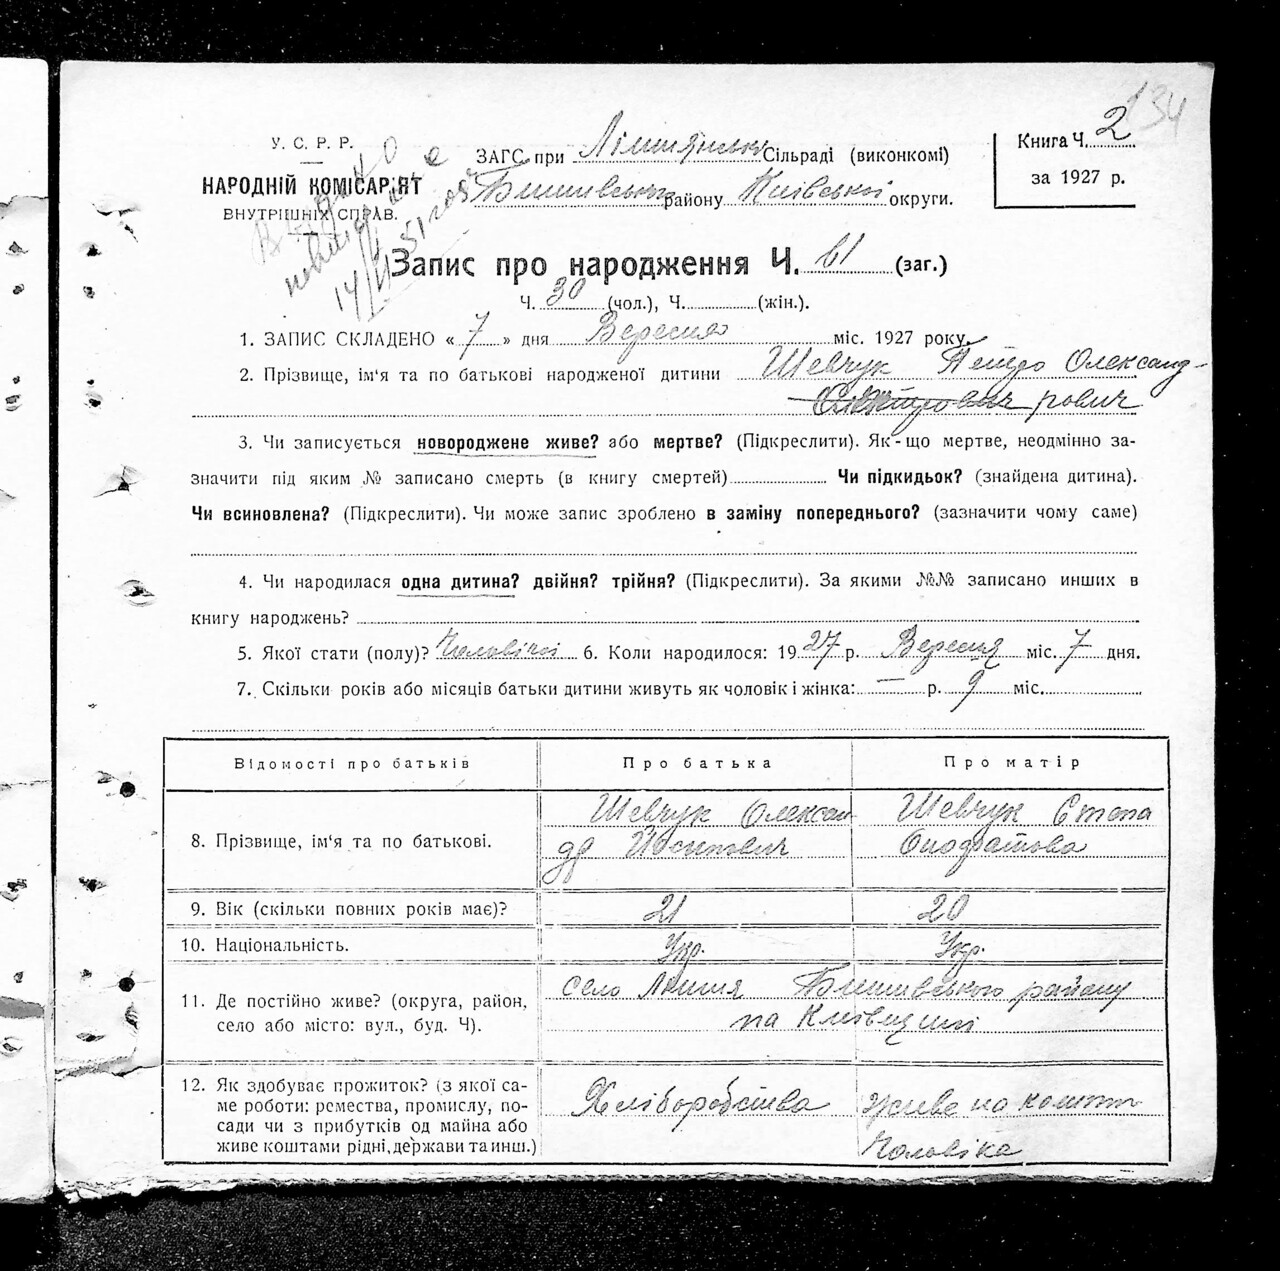 134
У. С. Р. Р.
НАРОДНІЙ КОМІСАР'ЯТ
ВНУТРІШНІХ СПРАВ.
14/II 51
ЗАГС при Сільраді (виконкомі)
Бишівського району Київської округи.
Книга Ч. 2
за 1927 р.
Запис про народження Ч. 61 (заг.)
Ч. 30 (чол.), Ч. (жін.).
1. ЗАПИС СКЛАДЕНО « 7 » дня Вересня міс. 1927 року.
2. Прізвище, ім'я та по батькові народженої дитини Шевчук Петро Олександ-
рович
3. Чи записується новороджене живе? або мертве? (Підкреслити). Як-що мертве, неодмінно за-
значити під яким № записано смерть (в книгу смертей) Чи підкидьок? (знайдена дитина).
Чи всиновлена? (Підкреслити). Чи може запис зроблено в заміну попереднього? (зазначити чому саме)
4. Чи народилася одна дитина? двійня? трійня? (Підкреслити). За якими №№ записано инших в
книгу народжень?
5. Якої стати (полу)? Чоловічої 6. Коли народилося: 1927 р. Вересня міс. 7 дня.
7. Скільки років або місяців батьки дитини живуть як чоловік і жінка: — р. 9 міс.
Відомості про батьків Про батька Про матір
8. Прізвище, ім'я та по батькові. Шевчук Олексан-
др Йосипович
Шевчук Степа
9. Вік (скільки повних років має)? 21 20
10. Національність. Укр. Укр.
11. Де постійно живе? (округа, район,
село або місто: вул., буд. Ч).
село Бишівського району
на Київщині
12. Як здобуває прожиток? (з якої са-
ме роботи: ремества, промислу, по-
сади чи з прибутків од майна або
живе коштами рідні, держави та инш.)
Хліборобства
живе на кошти
Чоловіка